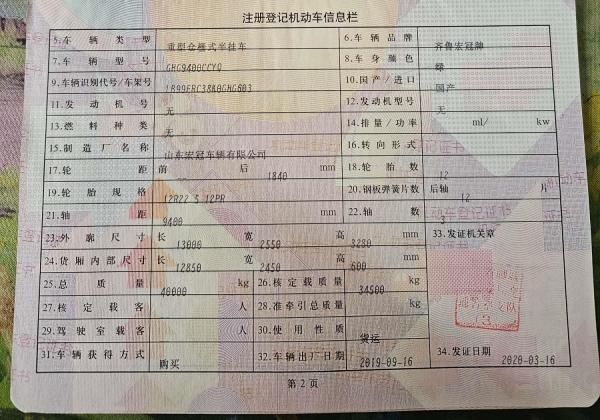 注册登记机动车信息栏
5.车辆类型 重型仓栅式半挂车 6.车辆品牌 齐鲁宏冠牌
7.车辆型号 GHG9400CCYQ 8.车身颜色 绿
9.车辆识别代号/车架号 10.国产/进口 国产
11.发动机号 无 12.发动机型号 无
13.燃料种类 无 14.排量/功率 ml/ kw
15.制造厂名称 山东宏冠车辆有限公司 16.转向形式
17.轮距 前 后 1840 mm 18.轮胎数 12
19.轮胎规格 12R22.5 12PR 20.钢板弹簧片数 后轴 12 片
21.轴距 9400 mm 22.轴数 3
23.外廓尺寸 长 13000 宽 2550 高 3280 mm 33.发证机关章
24.货厢内部尺寸 长 12850 宽 2450 高 600 mm
25.总质量 40000 kg 26.核定载质量 34500 kg
27.核定载客 人 28.准牵引总质量 kg
29.驾驶室载客 人 30.使用性质 货运
31.车辆获得方式 购买 32.车辆出厂日期 2019-09-16 34.发证日期 2020-03-16
第2页